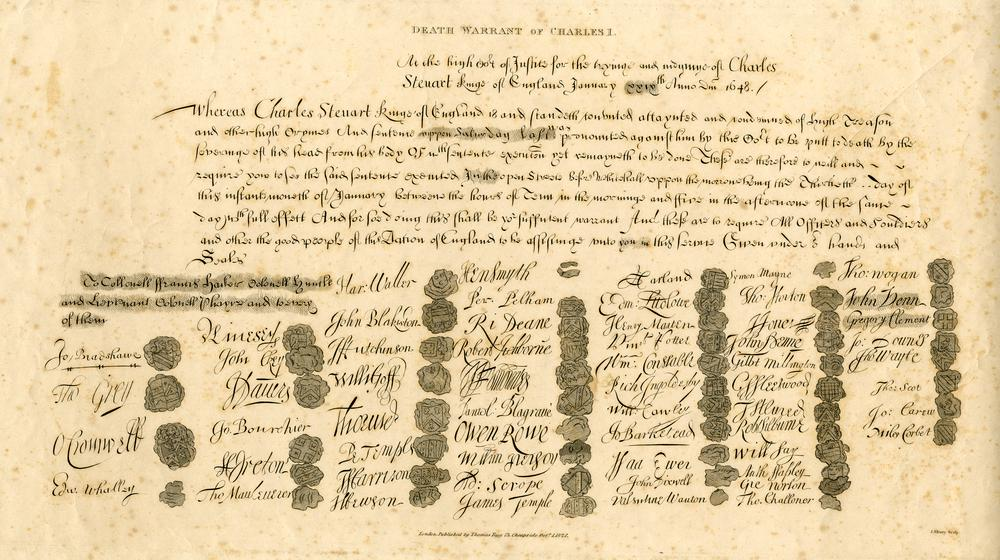 DEATH WARRANT OF CHARLES I.
At the high Cort of Justice for the tryinge and iudginge of Charles
Steuart kinge of England January xxixth Anno Dm 1648./
Whereas Charles Steuart kinge of England is and standeth convicted attaynted and condemned of high Treason
and other high Crymes And sentence uppon Saturday last was pronounced against him by this Cort to be putt to death by the
severinge of his head from his body Of wch sentence execucon yet remayneth to be done These are therefore to will and
require you to see the said sentence executed In the open Streete before Whitehall uppon the morrowe being the Thirtieth day of
this instante moneth of January betweene the hours of Tenn in the morninge and ffive in the afternoone of the same
day wth full effect And for soe doing this shall be yor sufficient warrant And these are to require All Officers and Souldiers
and other the good people of this Nation of England to be assistinge unto you in this service Given under or hands and
Seales
To Collonell ffrancis Hacker Colonell Huncks
and Lieutenant Colonell Phayre and to every
of them
Jo. Bradshawe
Tho Grey
O Cromwell
Edw. Whalley
M Livesey
John Okey
J Dauers
Jo. Bourchier
H Ireton
Tho Mauleverer
Har. Waller
John Blakiston
J Hutchinson
Willi Goff
Tho Pride
P. Temple
T Harrison
J Hewson
Hen Smyth
Per. Pelham
Ri Deane
Robert Tichborne
Daniel Blagrave
Owen Rowe
William Purefoy
Ad: Scrope
James Temple
A Garland
Edm: Ludlowe
Henry Marten
Vint Potter
Wm: Constable
Rich Ingoldesby
Will Cawley
Jo Barkestead
Isaa Ewer
John Dixwell
Valentine Wauton
Symon Mayne
Tho: Horton
J Jones
John Penne
Gilbt Millington
G Fleetwood
J Alured
Rob Lilburne
Will Say
Anth Stapley
Gre Norton
Tho: Challoner
Tho: Wogan
John Venn
Gregory Clement
Jo: Downes
Tho Wayte
Tho: Scot
Jo: Carew
Miles Corbet
London, Published by Thomas Tegg 73, Cheapside Octr 1, 1821.